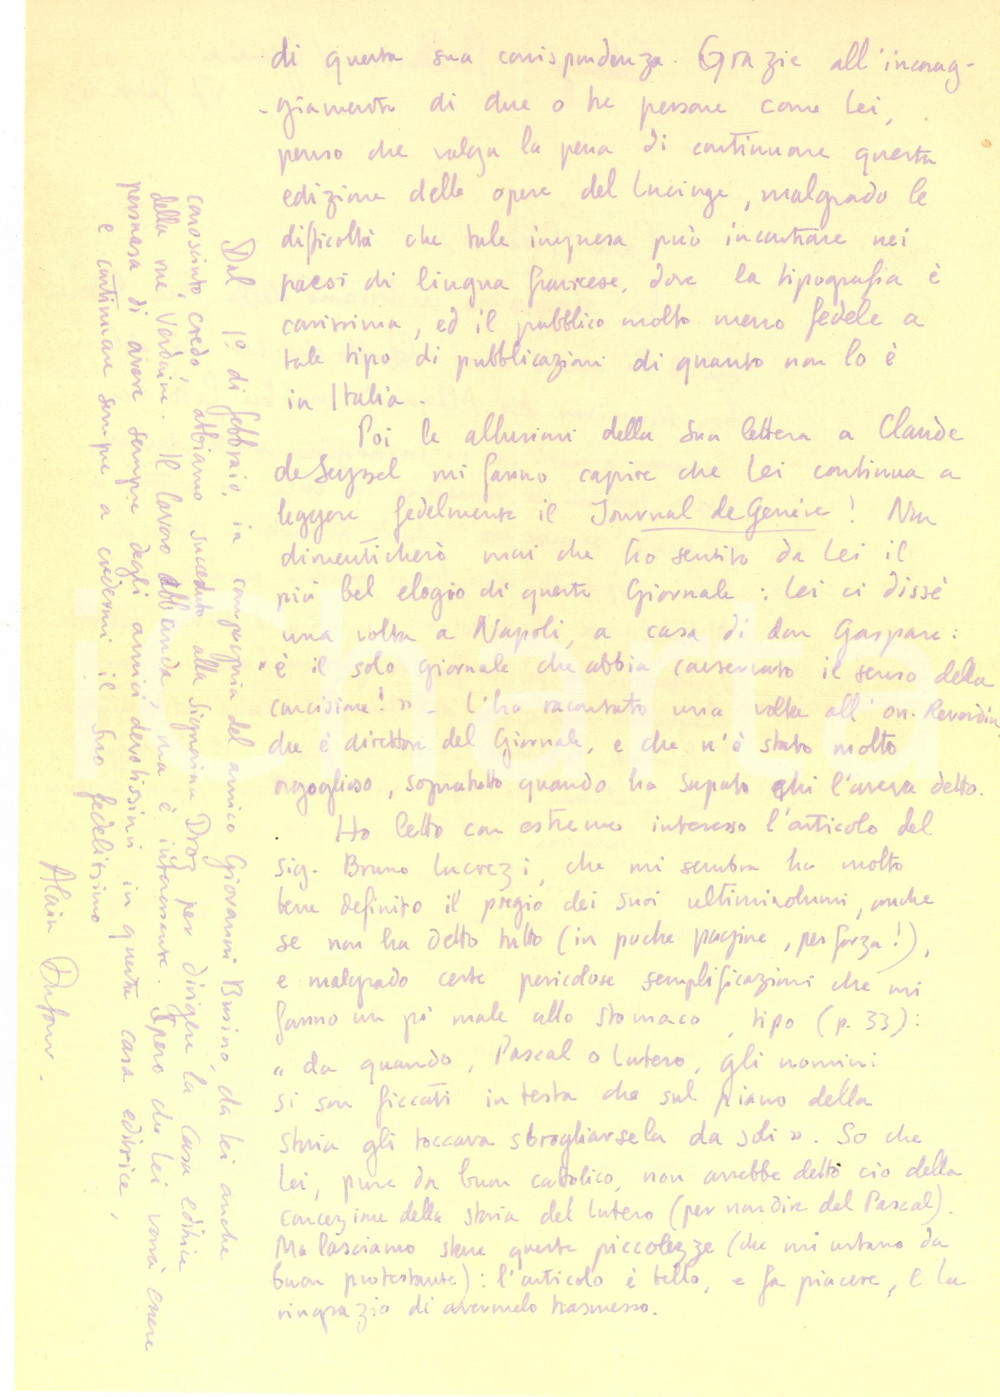 di questa sua corrispondenza. Grazie all'incorag-
-giamento di due o tre persone come Lei,
penso che valga la pena di continuare questa
edizione delle opere del Lucinge, malgrado le
difficoltà che tale impresa può incontrare nei
paesi di lingua francese, dove la tipografia è
carissima, ed il pubblico molto meno fedele a
tale tipo di pubblicazioni di quanto non lo è
in Italia.
Poi le allusioni della Sua lettera a Claude
de Seyssel mi fanno capire che Lei continua a
leggere fedelmente il Journal de Genève! Non
dimenticherò mai che ho sentito da Lei il
più bel elogio di questo Giornale: Lei ci disse
una volta a Napoli, a casa di don Gaspare:
"è il solo giornale che abbia conservato il senso della
concisione!». L'ho racontato una volta all'on. Reverdin
che è direttore del Giornale, e che n'è stato molto
orgoglioso, sopratutto quando ha saputo chi l'aveva detto.
Ho letto con estremo interesse l'articolo del
sig. Bruno Lucrezi, che mi sembra ha molto
bene definito il pregio dei suoi ultimi volumi, anche
se non ha detto tutto (in poche pagine, per forza!),
e malgrado certe pericolose semplificazioni che mi
fanno un pò male allo stomaco, tipo (p. 33):
"da quando, Pascal o Lutero, gli uomini
si son ficcati in testa che sul piano della
storia gli toccava sbrogliarsela da soli». So che
Lei, pure da buon cattolico, non avrebbe detto ciò della
concezione della storia del Lutero (per non dire del Pascal).
Ma lasciamo stare queste piccolezze (che mi urtano da
buon protestante): l'articolo è bello, e fa piacere, e La
ringrazio di avermelo trasmesso.
Dal 1º di febbraio, in compagnia del amico Giovanni Busino, da Lei anche
conosciuto, credo, abbiamo succeduto alla Signorina Droz per dirigere la Casa editrice
della rue Verdaine. Il lavoro abbonda, ma è interessante. Spero che Lei vorrà essere
persuasa di avere sempre degli amici devotissimi in questa casa editrice,
e continuare sempre a credermi il Suo fedelissimo
Alain Dufour.